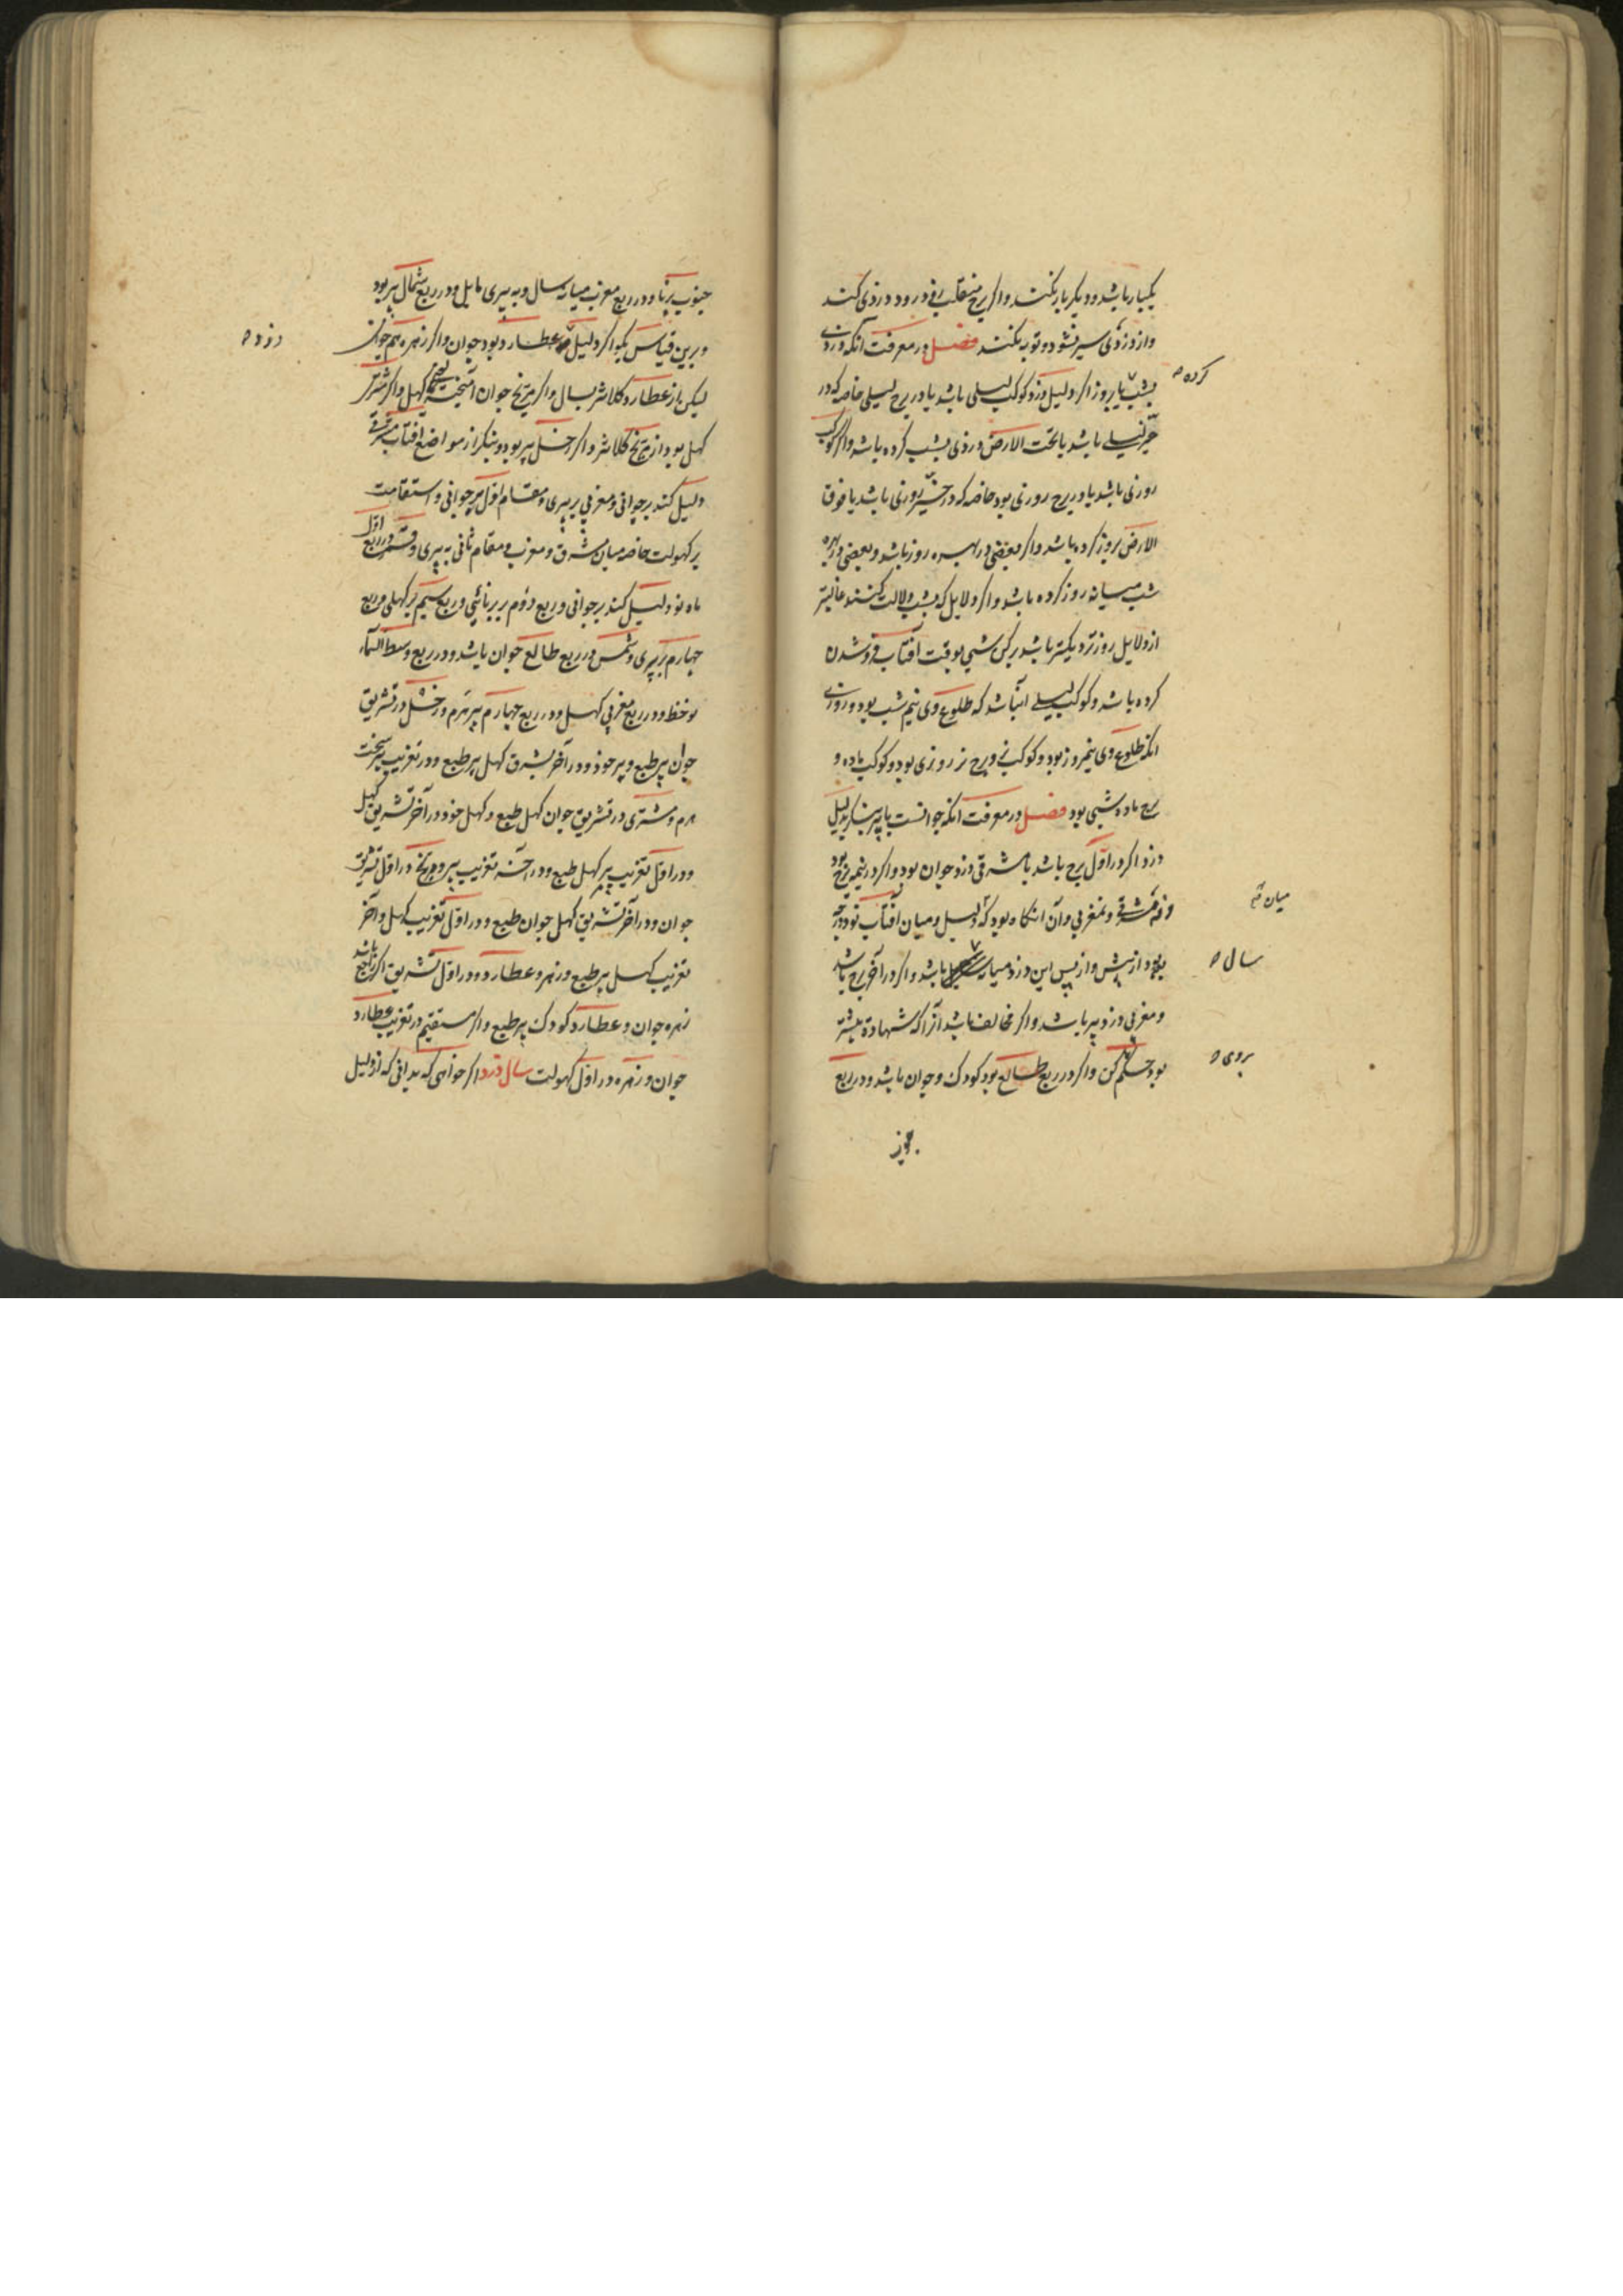 یکبار باشد و دیگر بار نکند و اگر برج منقلب افتد رود دزدی کند
و از دزدی سیر نشود و توبه نکند فصل در معرفت آنکه دزدی
بشب یا بروز اگر دلیل دزد کوکب لیلی باشد یا در برج لیلی خاصه که در
کرده
حیز لیلی باشد یا تحت الارض دزدی بشب کرده باشد و اگر کوکب
روزی باشد یا در برج روزی بود خاصه که در حیز روزی باشد یا فوق
الارض بروز کرده باشد و اگر بعضی در بهره روز باشد و بعضی در بهره
شب میانه روز کرده باشد و اگر دلایل که بشب دلالت کنند غالبتر
از دلایل روز نزدیکتر باشد بوقت آفتاب فرو شدن
کرده باشد و کوکب لیلی آن باشد که طلوع وی نیم شب بود و روزی
آنکه طلوع وی نیمروز بود و کوکب نر و برج نر روزی بود و کوکب ماده و
برج ماده شبی بود فصل در معرفت آنکه جوانست یا پیر بنگر بدلیل
دزد اگر در اول برج باشد یا مشرقی دزد جوان بود و اگر در نیمه برج بود
و نه مشرقی و نه مغربی و آن آنگاه بود که دلیل و میان آفتاب نود درجه
میان
بود از پیش و از پس این دزد میانه باشد و اگر در آخر برج باشد
سال
و مغربی دزد پیر باشد و اگر مخالف باشد آنرا که شهادة بیشتر
بود حکم کن و اگر در ربع طالع بود کودک و جوان باشد و در ربع
بروی
جنوب برنا و در ربع مغرب میانه سال و به پیری مایل و در ربع شمال پیر بود
و برین قیاس بگو اگر دلیل عطارد بود جوان و اگر زهره هم جوان
دزد
لیکن باز عطارد کلانتر بسال و اگر مریخ جوان آمیخته کهل و اگر مشتری
کهل بود از مریخ کلانتر و اگر زحل پیر بود و بنگر از مواضع آفتاب مشرقی
دلیل کند بر جوانی و مغربی بر پیری و مقام اول بر جوانی و استقامت
بر کهولت خاصه میان مشرق و مغرب و مقام ثانی به پیری و قمر در ربع اول
ماه نو دلیل کند بر جوانی و ربع دوم بر برنائی و ربع سیم بر کهلی و ربع
چهارم بر پیری و شمس در ربع طالع جوان باشد و در ربع وسط السماء
نوخط و در ربع مغربی کهل و در ربع چهارم پیر هرم و زحل در تشریق
جوان پیر طبع و پیر خود و در آخر تشریق کهل پیر طبع و در تغریب پیر سخت
هرم و مشتری در تشریق جوان کهل طبع و کهل خود در آخر تشریق کهل
و در اول تغریب پیر کهل طبع و در آخر تغریب پیر و مریخ در اول تشریق
جوان و در آخر تشریق کهل جوان طبع و در اول تغریب کهل و آخر
تغریب کهل پیر طبع و زهره و عطارد در اول تشریق اگر راجع باشد
زهره جوان و عطارد کودک پیر طبع و اگر مستقیم در تغریب عطارد
جوان و زهره در اول کهولت سال دزد اگر خواهی که بدانی که از دلیل